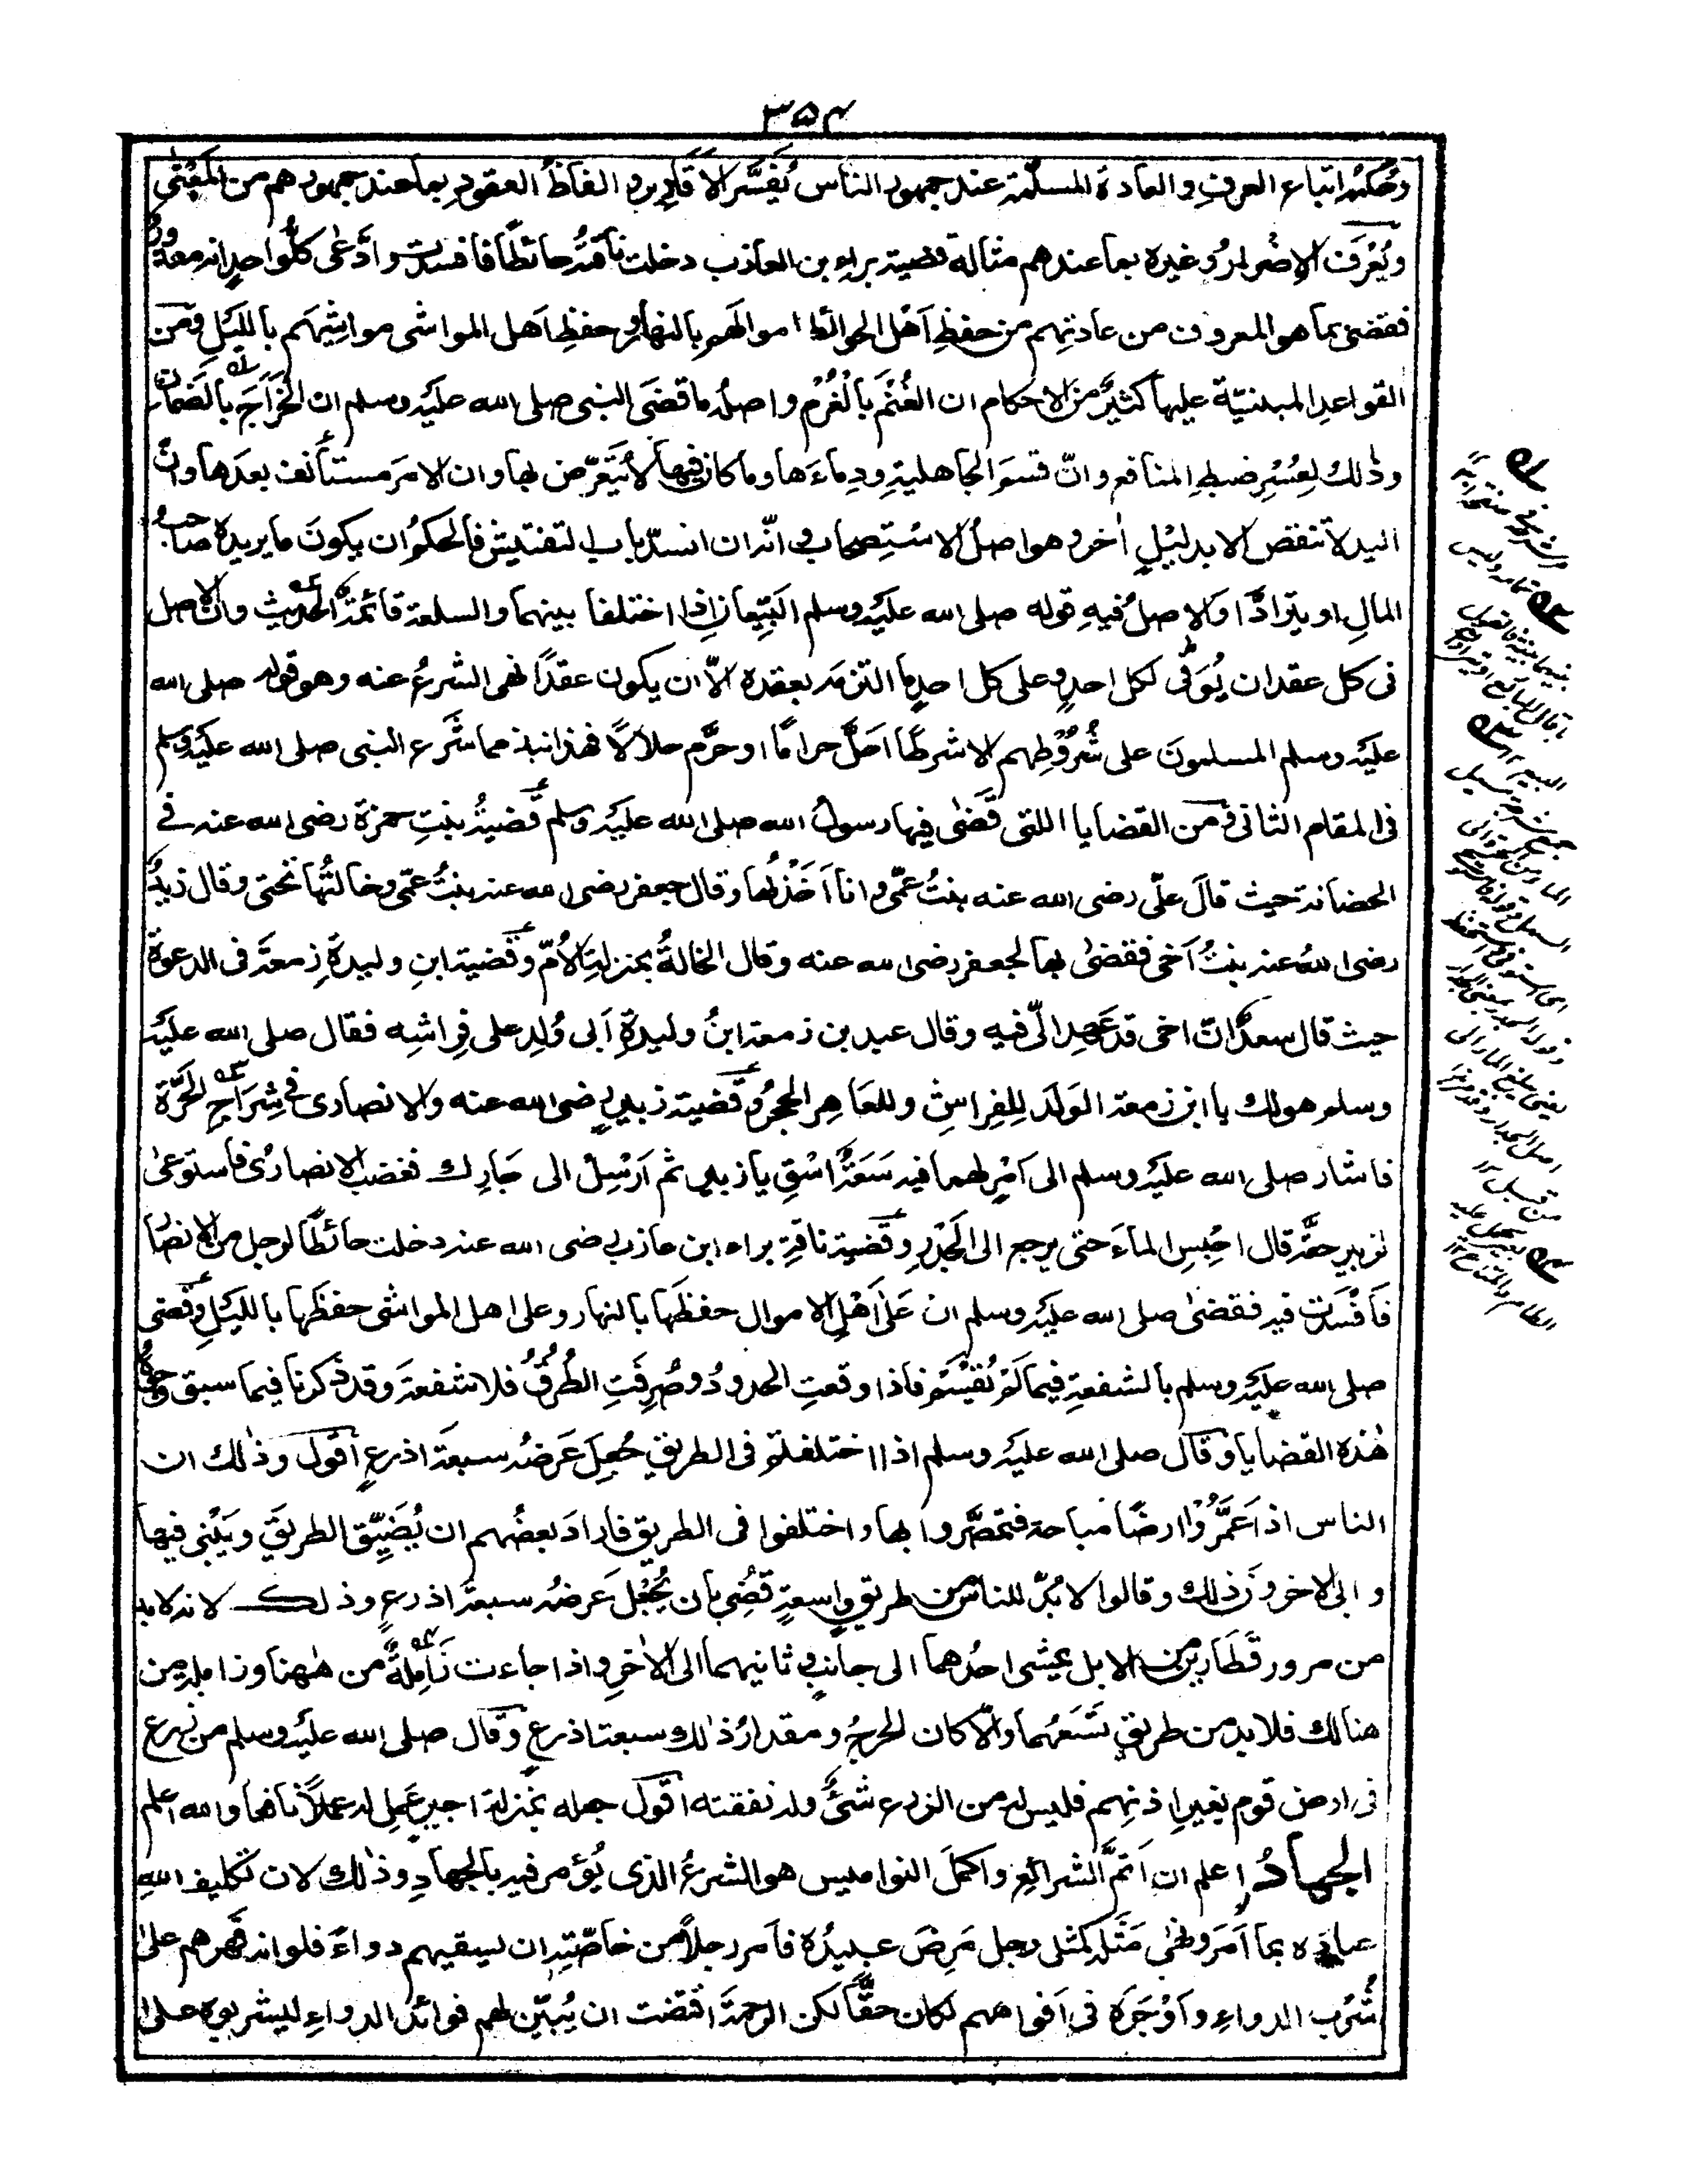 ۳۵۴
وحُكمُه اتباع العرفِ والعادة المسلّمة عند جمهور الناس يُفَسَّر الأقاريرو الفاظُ العقودِ بما عند جمهورهم من المعنى
ويُعْرَف الإضرارُ وغيره بما عندهم مثاله قضية براء بن العازب دخلت ناقتُه حائطًا فافسدت وادَّعى كلُّ واحدٍ انه معذورٌ
فقضى بما هو المعروف من عادتِهم من حفظِ أهل الحوائط اموالَهم بالنهارِ و حفظِ أهل المواشى مواشِيَهم بالليل ومن
القواعدِ المبنيّة عليها كثيرٌ من الاحكام ان الغُنْمَ بالْغُرْمِ واصلُه ما قضَى النبى صلى الله عليه وسلم ان الخَرَاجَ بالضَمان
وذٰلك لِعُسْرِ ضبطِ المنافع وانّ قسمَ الجاهليةِ ودِماءَها وما كان فيها لا يُتَعرّض لها وان الامرَ مستأنف بعدَها وانّ
اليد لا تنقض الا بدليلٍ اٰخر وهو اصلُ الاستِصحاب وانّه ان انسدّ باب التفتيش فالحكمُ ان يكونَ ما يريده صاحبُ
المالِ او يترادَّا والاصلُ فيهِ قوله صلى الله عليه وسلم البَيِّعان اذا اختلفا بينهما والسلعة قائمةٌ الحديث وان الاصل
فى كل عقد ان يُوَفّٰى لكل احدٍ وعلى كل احدٍ ما التزمه بعقده الّا ان يكون عقدًا نهى الشرعُ عنه وهو قوله صلى الله
عليه وسلم المسلمونَ على شُرُوْطِهم الا شرطًا احَلَّ حرامًا او حرَّم حلالًا فهذا نبذ مما شَرَع النبى صلى الله عليه وسلم
فى المقام الثانى ومن القضايا اللتى قَضٰى فيها رسولُ الله صلى الله عليه وسلم قضيةُ بنتِ حمزة رضى الله عنه فے
الحضانة حيث قالَ علّى رضى الله عنه بنتُ عمّى وانا أخذتُها وقال جعفر رضى الله عنه بنتُ عمّى وخالتُها تحتى وقال زيدٌ
رضى اللهُ عنه بنتُ أخى فقضىٰ بها لجعفر رضى الله عنه وقال الخالةُ بمنزلةِ الأُمّ وقضية ابنِ وليدةِ زمعةَ فى الدعوة
حيث قال سعدٌ انّ اخى قد عَهِد الّى فيه وقال عبد بن زمعة ابنُ وليدةِ أبى وُلِد على فِراشِه فقال صلى الله عليه
وسلم هو لك يا ابن زمعة الوَلَد للِفِراشِ وللعَاهِر الحجرُ وقضية زبيرٍ رضى الله عنه والانصارى فے شِرَاجِ الحَرَّة
فاشار صلى الله عليه وسلم الى امْرٍ لهما فيه سَعَةٌ اسْقِ يا زبير ثم اَرْسِلْ الى جَارِك فغضب الانصارىُّ فاستوعىٰ
لزبير حقَّه قال احْبِسِ الماءَ حتى يرجع الى الجَدْرِ وقضية ناقةِ براء ابن عازب رضى الله عنه دخلت حائطًا لرجل من الانصار
فأفْسَدَت فيه فقضىٰ صلى الله عليه وسلم ان عَلٰى أهْلِ الاموال حفظَها بالنهار وعلى اهل المواشى حفظَها بالليلِ وقضى
صلى الله عليه وسلم بالشفعةِ فيما لَمْ يُقْسَمْ فاذا وقعتِ الحدودُ وصُرِفَتِ الطُرُقُ فلا شفعةَ وقد ذكرنا فيما سبق وجوهَ
هٰذه القضايا وقال صلى الله عليه وسلم اذا اختلفتم فى الطريق جُعِلَ عَرضُه سبعةَ اذرعٍ اقول وذٰلك ان
الناس اذا عَمَّرُوْا ارضًا مباحة فتمصَّروا بها واختلفوا فى الطريق فارادَ بعضُهم ان يُضَيِّق الطريقَ ويَبْنى فيها
وابى الاخرون ذلك وقالوا لا بُدّ للناس من طريقٍ واسعةٍ قُضِى بان يُجْعَل عَرضُه سبعةَ اذرعٍ وذلك لانه لابد
من مرور قطارين من الابل يمشى احدُهما الى جانبٍ وثانيهما الى الاٰخر واذا جاءت زَامِلةٌ من هٰهنا وزاملة من
هنالك فلابد من طريقٍ تَسَعُهما والّا كان الحرجُ ومقدارُ ذٰلك سبعة اذرعٍ وقال صلى الله عليه وسلم من زرع
فى ارض قوم بغير اذنِهم فليس له من الزرع شىءٌ وله نفقته اقول جعله بمنزلة اجيرٍ عَمِل له عملًا نافعا والله اعلم
الجهادُ اعلم ان اَتمَّ الشرائعِ واكملَ النواميس هو الشرعُ الذى يُؤمر فيه بالجهادِ وذٰلك لان تكليف اللهِ
عبادَه بما اَمَر ونهٰى مَثَلُه كمثل رجل مَرِضَ عبيدُه فأمر رجلًا من خاصّتِه ان يسقيهم دواءً فلو انه قهرهم علىٰ
شُرْبِ الدواءِ واَوْجَرَه فى اَفواههم لكان حقًّا لكن الرحمةَ اقتضت ان يُبيّن لهم فوائد الدواءِ ليشربوه علىٰ